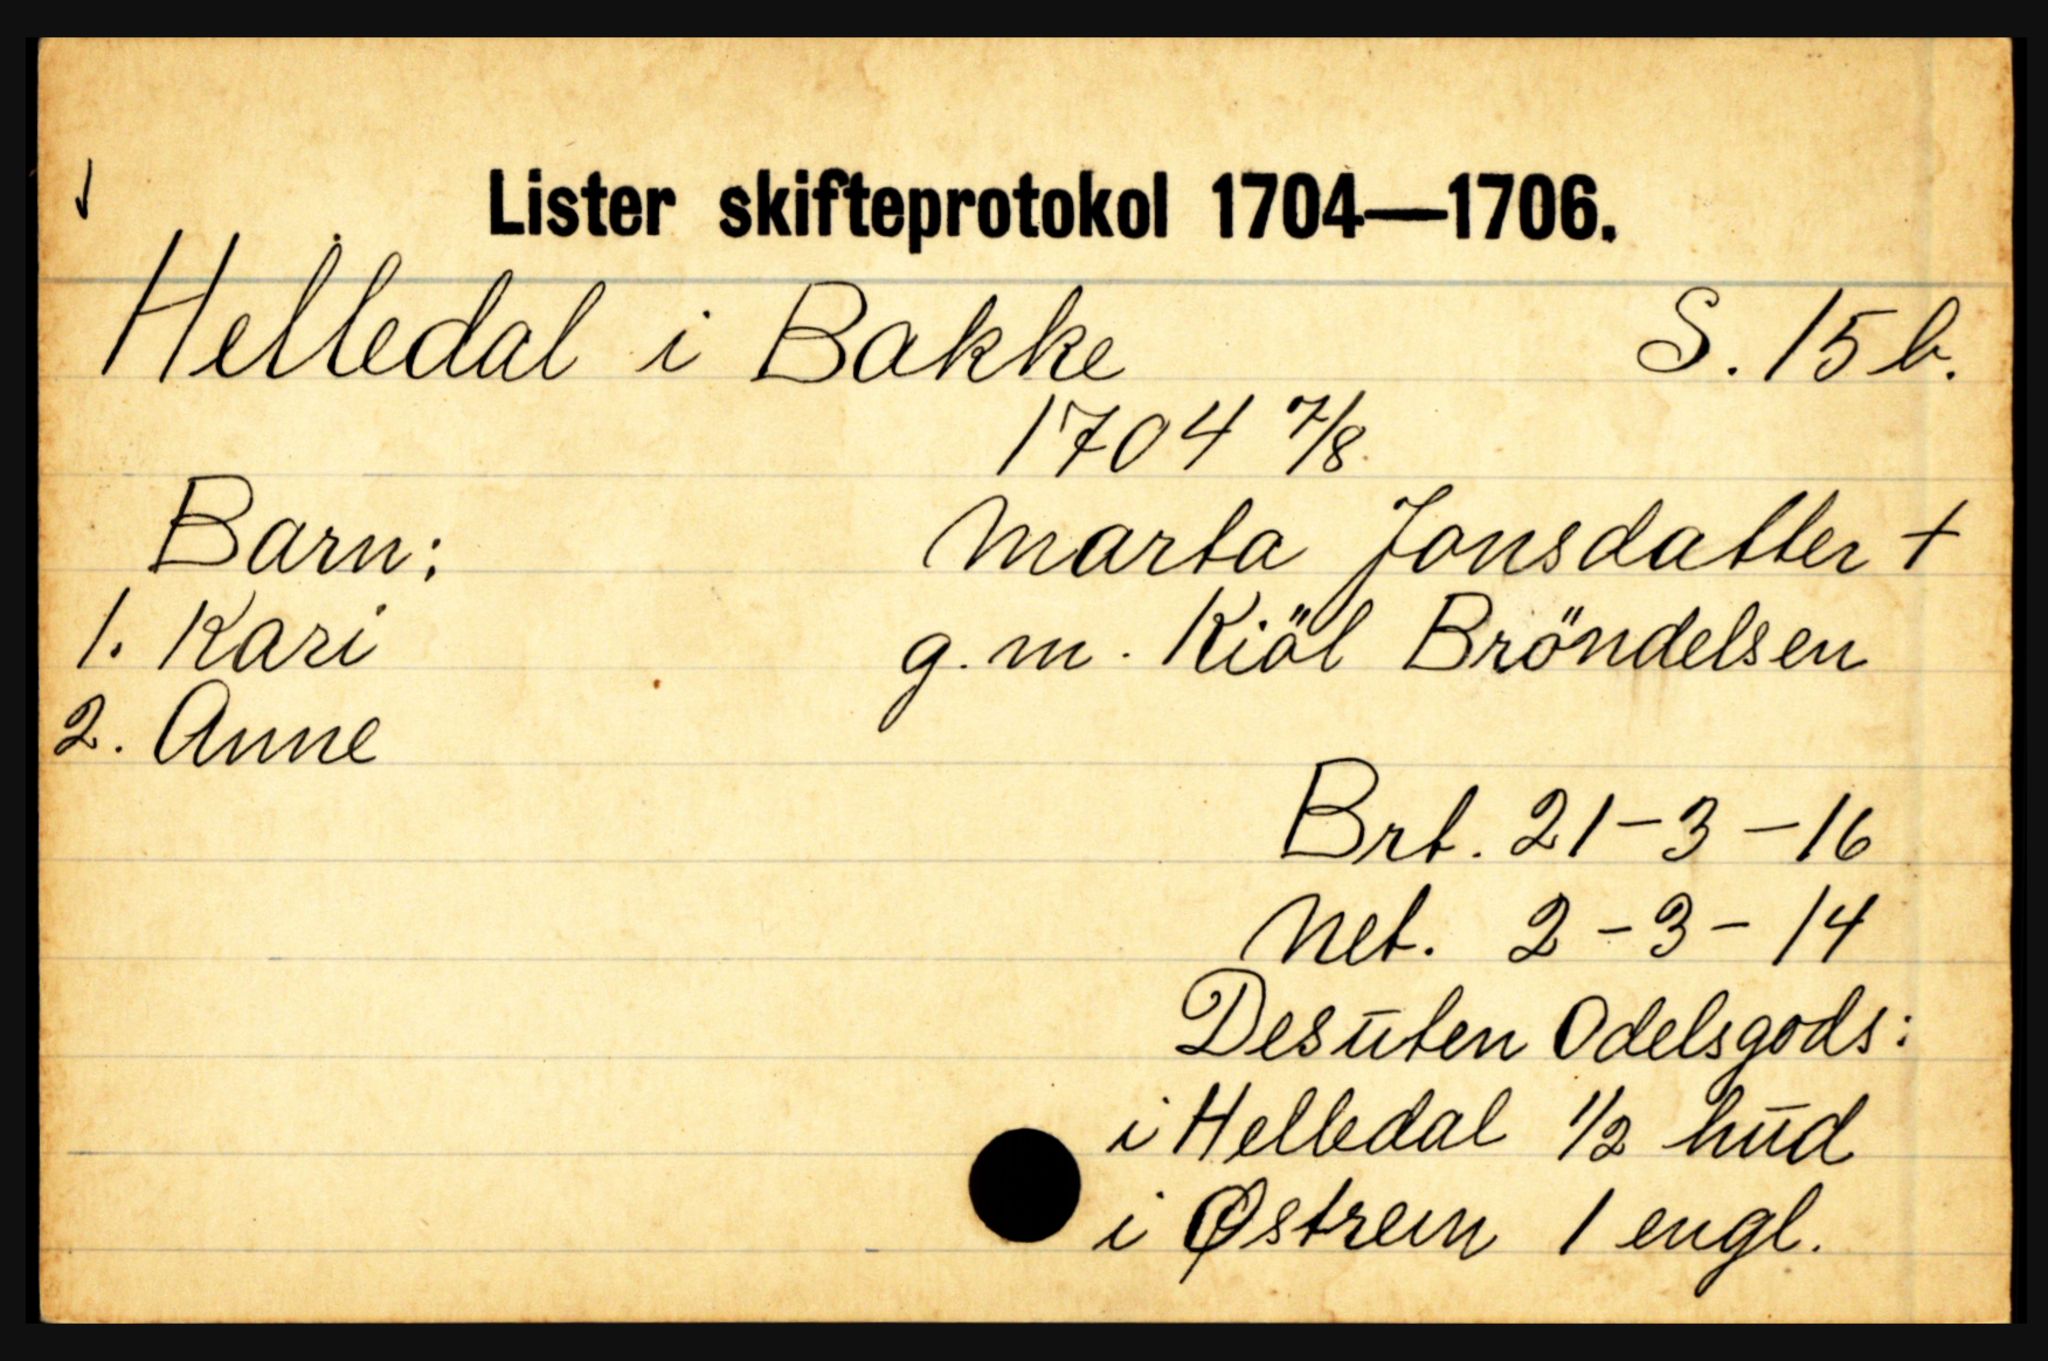 Lister skifteprotokol 1704—1706.
Helledal i Bakke S. 15 b.
1704 7/8.
Barn: Marta Jonsdatter +
1. Kari g. m. Kiöl Bröndelsen
2. Anne
Brt. 21-3-16
Net. 2-3-14
Desūten Odelsgods:
i Helledal 1/2 hūd
i Østrem 1 engl.